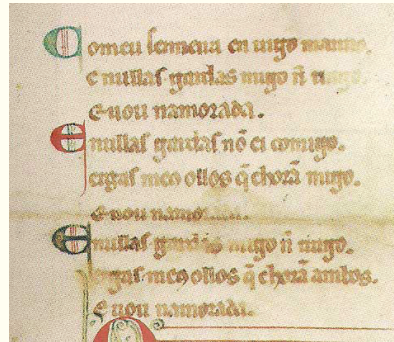 Comeu senneira en uigo manno.
e nullas gardas migo ñ trago.
e uou namorada.
E nullas gardas nõ ei comigo.
ergas meos ollos q̃ chorã migo.
e uou namorada.
E nullas gardas migo ñ trago.
ergas meos ollos q̃ chorã ambos.
E uou namorada.